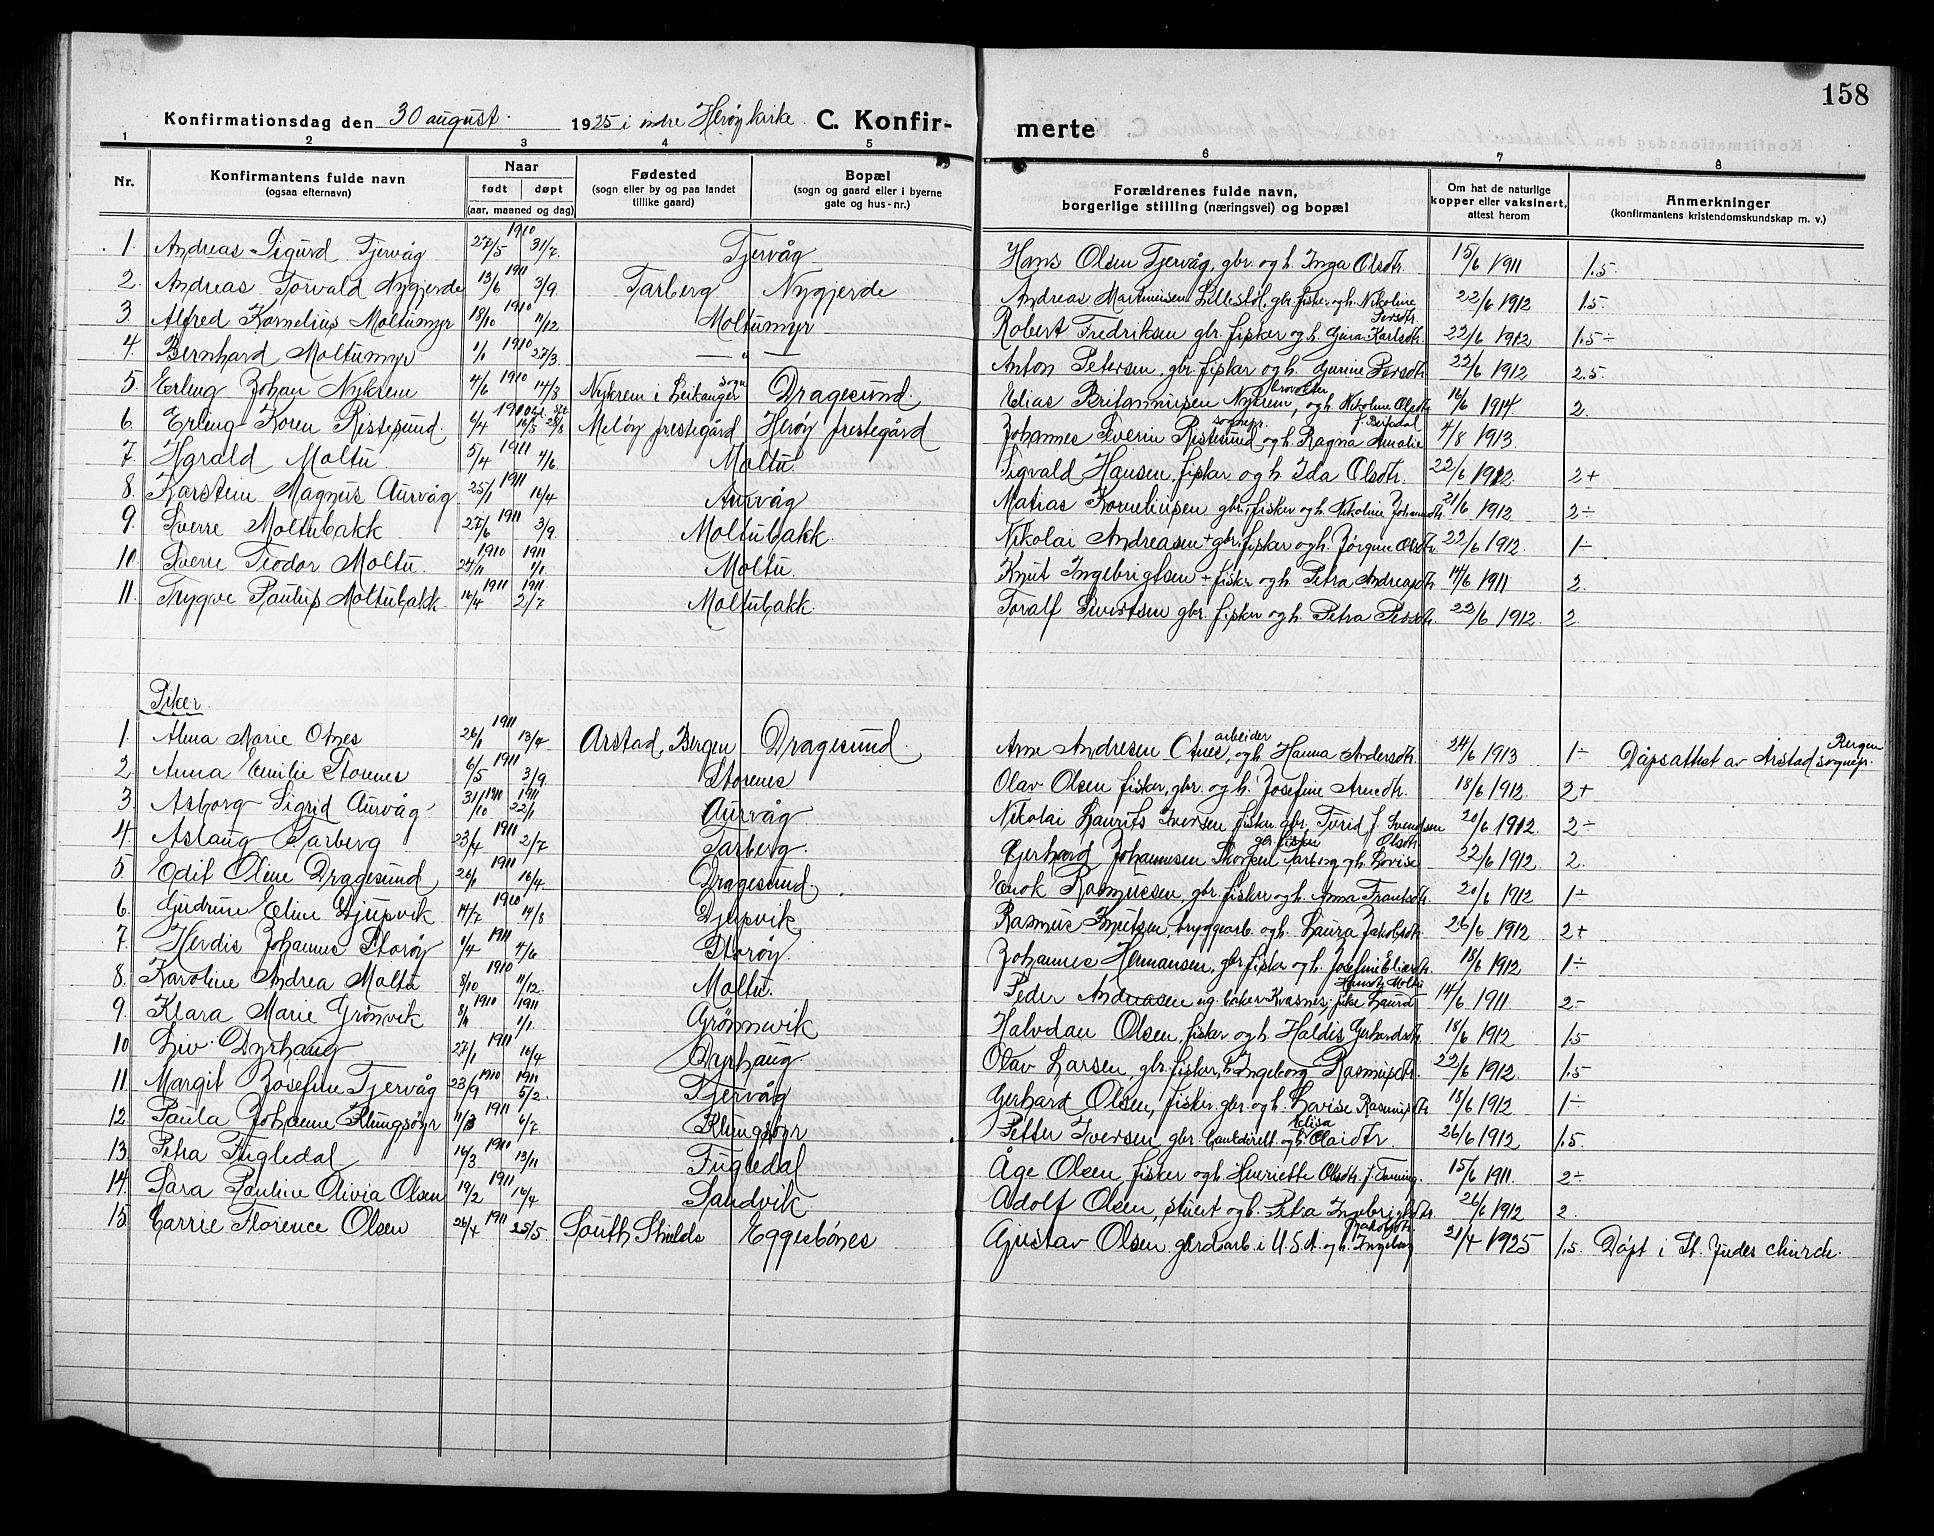 158
Konfirmationsdag den 30 august. 1925 i indre Herøy kirke. C. Konfir- merte
1 2 3 4 5 6 7 8
Nr. Konfirmantens fulde navn (ogsaa efternavn) Naar født døpt (aar, maaned og dag) Fødested (sogn eller by og paa landet tillike gaard) Bopæl (sogn og gaard eller i byerne gate og hus-nr.) Forældrenes fulde navn, borgerlige stilling (næringsvei) og bopæl Om hat de naturlige kopper eller vaksinert, attest herom Anmerkninger (konfirmantens kristendomskundskap m. v.)
1. Andreas Sigurd Tjervåg 27/5 1910 31/7. Tjervåg Hans Olsen Tjervåg, gbr. og h. Inga Olsdtr. 15/6 1911 1.5
2. Andreas Torvald Nygjerde 13/6 1911 3/9. Tarberg Nygjerde Andreas Martinusen Lillestøl, gbr. fisker og h. Nikoline Persdtr. 22/6 1912 1.5
3. Alfred Kornelius Moltumyr 18/10 1910 11/12. Moltumyr Robert Fredriksen gbr. fisker og h. Gina Karlsdtr. 22/6 1912 1.5 ÷
4. Bernhard Moltumyr 1/1 1910 27/3. — " — Anton Petersen, gbr. fisker og h. Gurine Persdtr 22/6 1912 2.5
5. Erling Johan Nykrem 4/6 1910 14/8 Nykrem i Leikanger sogn Dragesund. Elias Britanniusen Nykrem, og h. Nikoline Olsdtr 16/6 1914. 2.
6. Erling Koren Ristesund. 6/4 1910 16/5 28/8 Meløy prestegård Herøy prestegård Johannes Severin Ristesund sognepr. og h. Ragna Amalie 4/8 1913.
7. Harald Moltu. 5/4 1911 4/6. Moltu. Sigvald Hansen, fisker og h. Ida Olsdtr. 22/6 1912. 2+
8. Karstein Magnus Aurvåg 25/1 1911 16/4. Aurvåg Matias Korneliusen gbr., fisker og h. Nikoline Johansdtr. 21/6 1912 2÷
9. Sverre Moltubakk 27/6 1911 3/9. Moltubakk. Nikolai Andreasen + gbr. fisker og h. Jørgine Olsdtr. 22/6 1912. 1÷
10. Sverre Teodor Moltu. 24/11 1910 1911 1/1 Moltu. Knut Ingebrigtsen + fisker og h. Petra Andreasdtr. 14/6 1911 2.
11. Trygve Paulus Moltubakk. 16/4 1911 1911 2/7 Moltubakk. Toralf Sivertsen gbr. fisker og h. Petra Persdtr. 22/6 1912. 2
Piker.
1. Alma Marie Otnes 26/1 1911 13/4 Årstad, Bergen Dragesund. Arne Andresen Otnes, arbeider og h. Hanna Andersdtr. 24/6 1913 1÷ Dåpsattest av Årstad sognepr. Bergen
2. Anna Emilie Stornes 6/5 1911 3/9 Storenes Olav Olsen fisker, gbr. og h. Josefine Arnedtr. 18/6 1912. 2+
3. Asborg Sigrid Aurvåg 31/10 1910 1911 22/1 Aurvåg Nikolai Laurits Iversen fisker gbr. Turid f. Svendsen 20/6 1912. 2÷
4. Aslaug Tarberg 23/4 1911 2/7 Tarberg. Gerhard Johannesen Skorpen gbr. fisker Tarberg og h. Lovise Olsdtr. 22/6 1912. 2.
5. Edit Oline Dragesund 26/1 1911 16/4. Dragesund Enok Rasmussen, gbr. fisker og h. Anna Frantsdtr. 20/6 1912 1÷
6. Gudrun Eline Djupvik 14/7 1910 14/8 Djupvik Rasmus Knutsen, bryggearb. og h. Laura Jakobsdtr. 26/6 1912 2+
7. Herdis Johanne Storøy 1/4 1911 4/6 Storøy. Johannes Hermansen, gbr. fisker og h. Josefine Eliasdtr. 18/6 1912 1÷
8. Karoline Andrea Moltu 8/10 1910 11/12. Moltu. Peder Andreasen ug. baker Kvasnes, pike Laura Hansdtr. Moltu 14/6 1911 2÷
9. Klara Marie Grønvik 8/11 1910 1911 1/1. Grønnevik Halvdan Olsen, fisker og h. Haldis Gerhardsdtr. 18/6 1912 1.5
10. Liv Dyrhaug 27/1 1911 16/4 Dyrhaug. Olav Larsen, gbr. fisker, h. Ingeborg Rasmusdtr. 22/6 1912. 1.5
11. Margit Josefine Tjervåg 23/9 1910 1911 5/2. Tjervåg Gerhard Olsen, fisker gbr. og h. Lovise Rasmusdtr. 18/6 1912 1÷
12. Paula Johanne Klungsøyr 11/3 1911 6/7 Klungsøyr Petter Iversen gbr. bankdirekt. og h. Elisa Olaidtr 26/6 1912 1.5.
13. Petra Fugledal 16/3 1910 13/11 Fugledal Åge Olsen, fisker og h. Henriette Olsdtr. f. Tonning. 15/6 1911. 2÷
14. Sara Pauline Olivia Olsen 19/2 1911 16/4 Sandvik Adolf Olsen, stuert og h. Petra Ingebrigtsdtr. 26/6 1912 2.
15. Carrie Florence Olsen 26/4 1911 25/5. South Shields Eggesbönes Gustav Olsen gårdarb. i U.S.A. og h. Ingeborg Jakobsdtr. 21/4 1925 1.5 Døpt i St. Judes church.